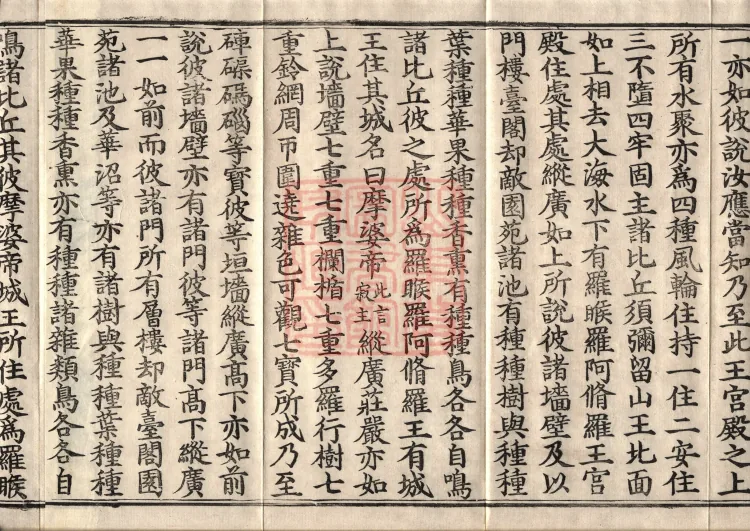 一亦如彼說汝應當知乃至此王宮殿之上
所有水聚亦爲四種風輪住持一住二安住
三不墮四牢固主諸比丘須彌留山王北面
如上相去大海水下有羅睺羅阿脩羅王宮
殿住處其處縱廣如上所說彼諸墻壁及以
門樓臺閣却敵園苑諸池有種種樹與種種
葉種種華果種種香熏有種種鳥各各自鳴
諸比丘彼之處所爲羅睺羅阿脩羅王有城
王住其城名曰摩婆帝此言寂主縱廣莊嚴亦如
上說墻壁七重七重欄楯七重多羅行樹七
重鈴網周帀圍遶雜色可觀七寶所成乃至
硨磲碼碯等寶彼等垣墻縱廣髙下亦如前
說彼諸墻壁亦有諸門彼等諸門髙下縱廣
一一如前而彼諸門所有層樓却敵臺閣園
苑諸池及華沼等亦有諸樹與種種葉種種
華果種種香熏亦有種種諸雜類鳥各各自
鳴諸比丘其彼摩婆帝城王所住處爲羅睺